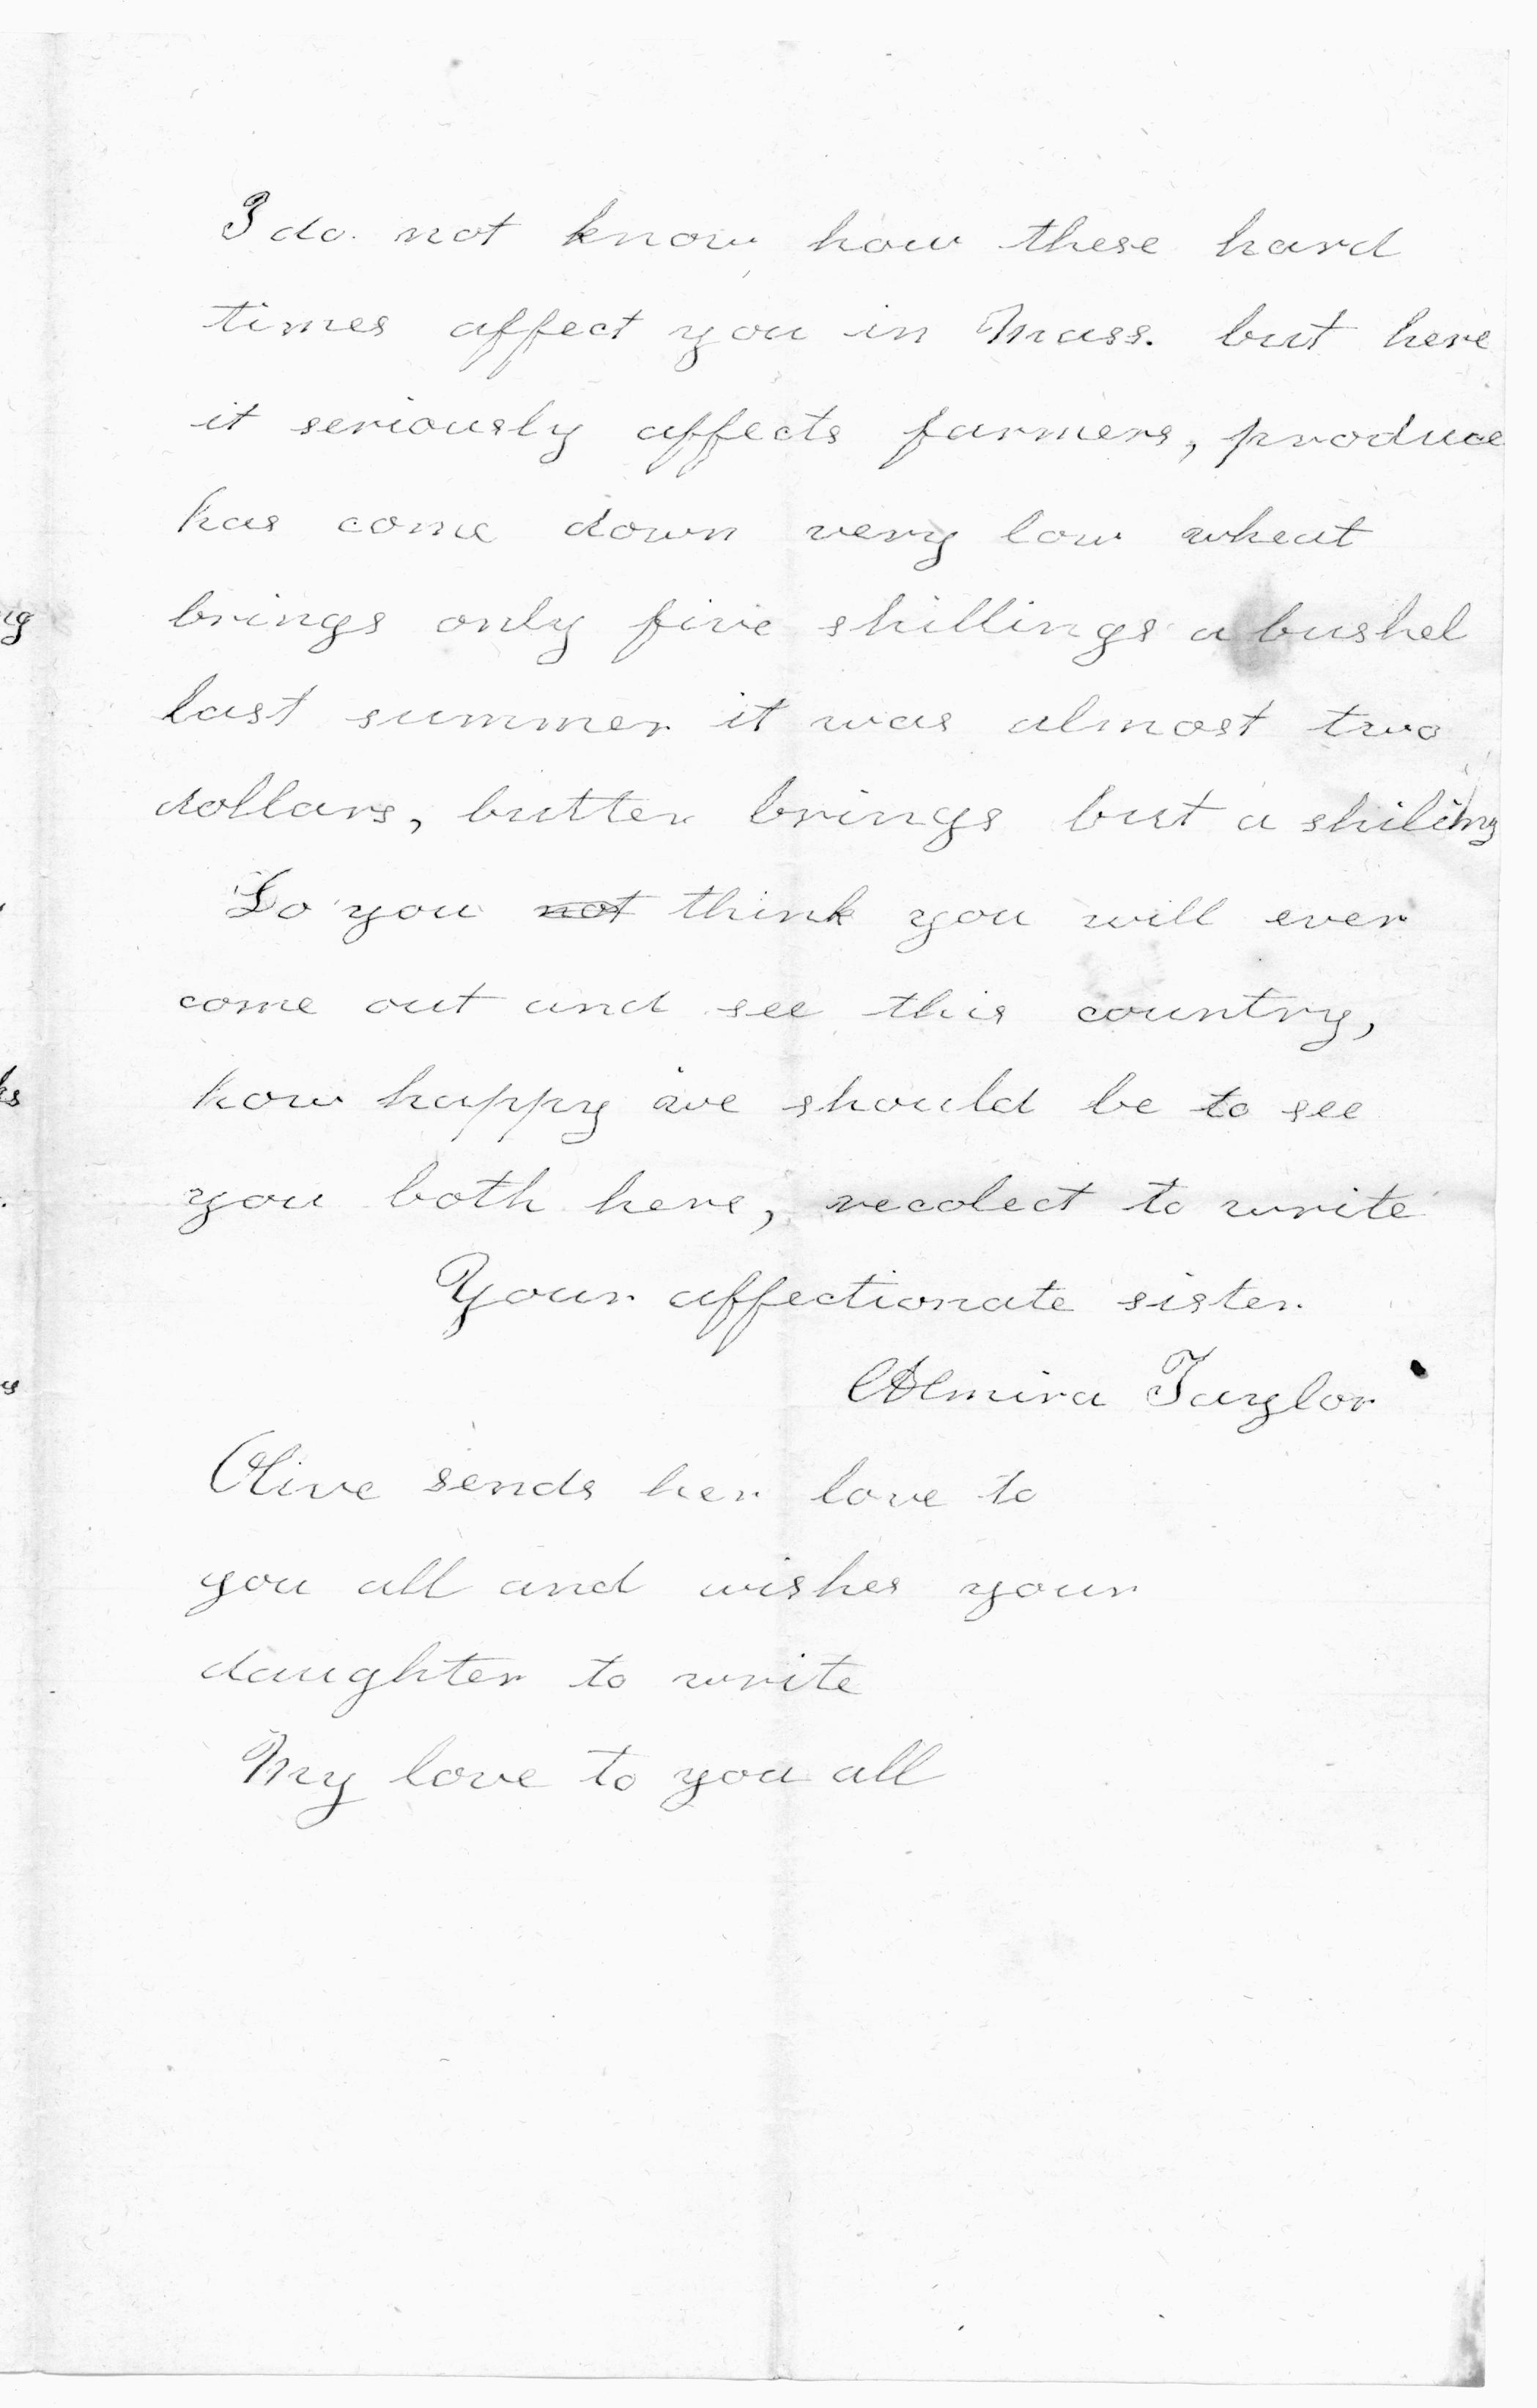 I do not know how these hard
times affect you in Mass. but here
it seriously affects farmers, produce
has come down very low wheat
brings only five shillings a bushel
last summer it was almost two
dollars, butter brings but a shiling
Do you ~~not~~ think you will ever
come out and see this country,
how happy we should be to see
you both here, recolect to write
Your affectionate sister
Almira Taylor
Olive sends her love to
you all and wishes your
daughter to write
My love to you all